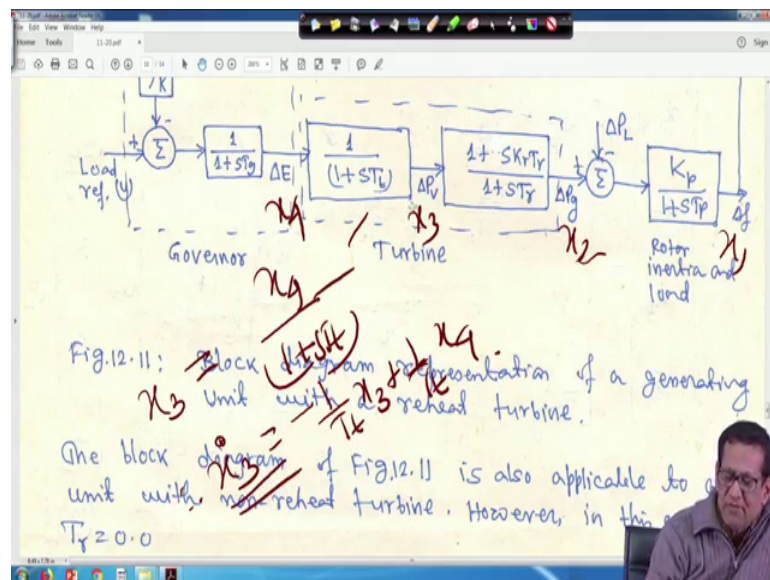 11-20.pdf - Adobe Acrobat Reader DC
File Edit View Window Help
Home Tools 11-20.pdf × Sign
1/R
Load ref. (u) + - Σ 1 / 1+STg ΔE 1 / (1+STt) ΔPv 1+SKrTr / 1+STr ΔPg + - Σ ΔPL Kp / 1+STp Δf
x4 x3 x2 x1
Governor Turbine Rotor inertia and load
x4 / (1+STt)
x3 =
ẋ3 = -1/Tt x3 + 1/Tt x4
Fig.12.11: Block diagram representation of a generating
unit with a reheat turbine.
The block diagram of Fig.12.11 is also applicable to a
unit with non-reheat turbine. However, in this
Tr = 0.0